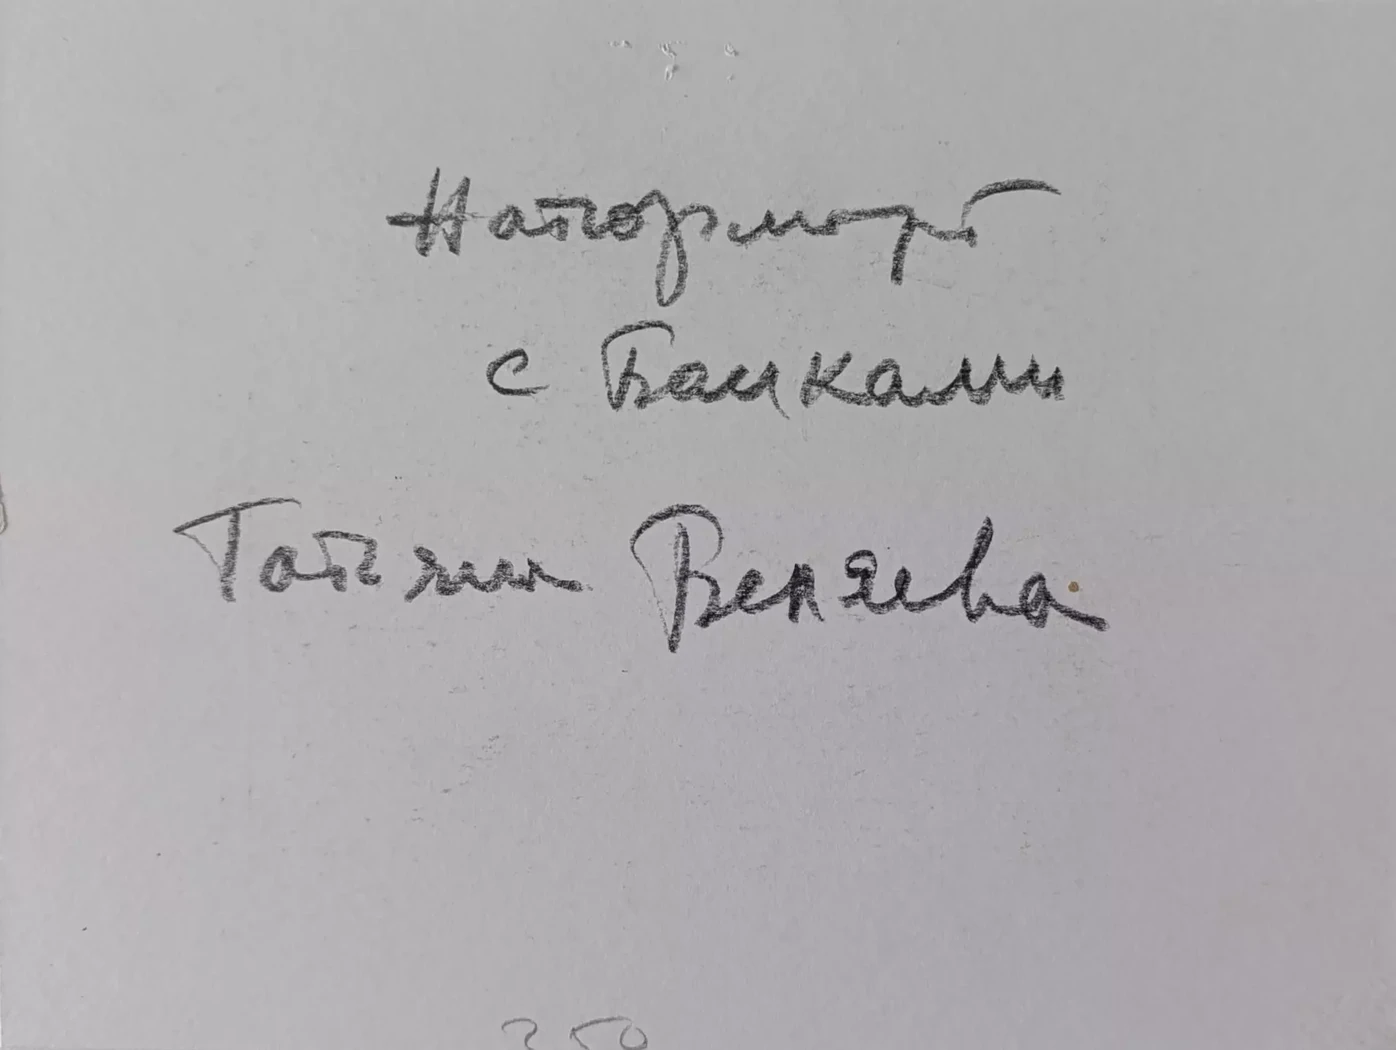 Натюрморт
с Банками
Татьяна Беляева
250